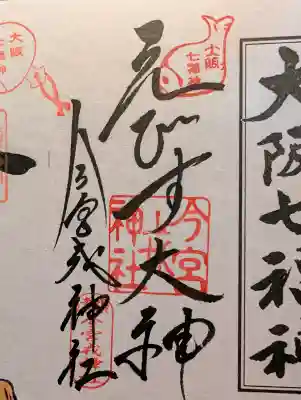 大阪七福神
大阪
七福神
えびす大神
今宮
神社
今宮戎神社
大阪
七福神